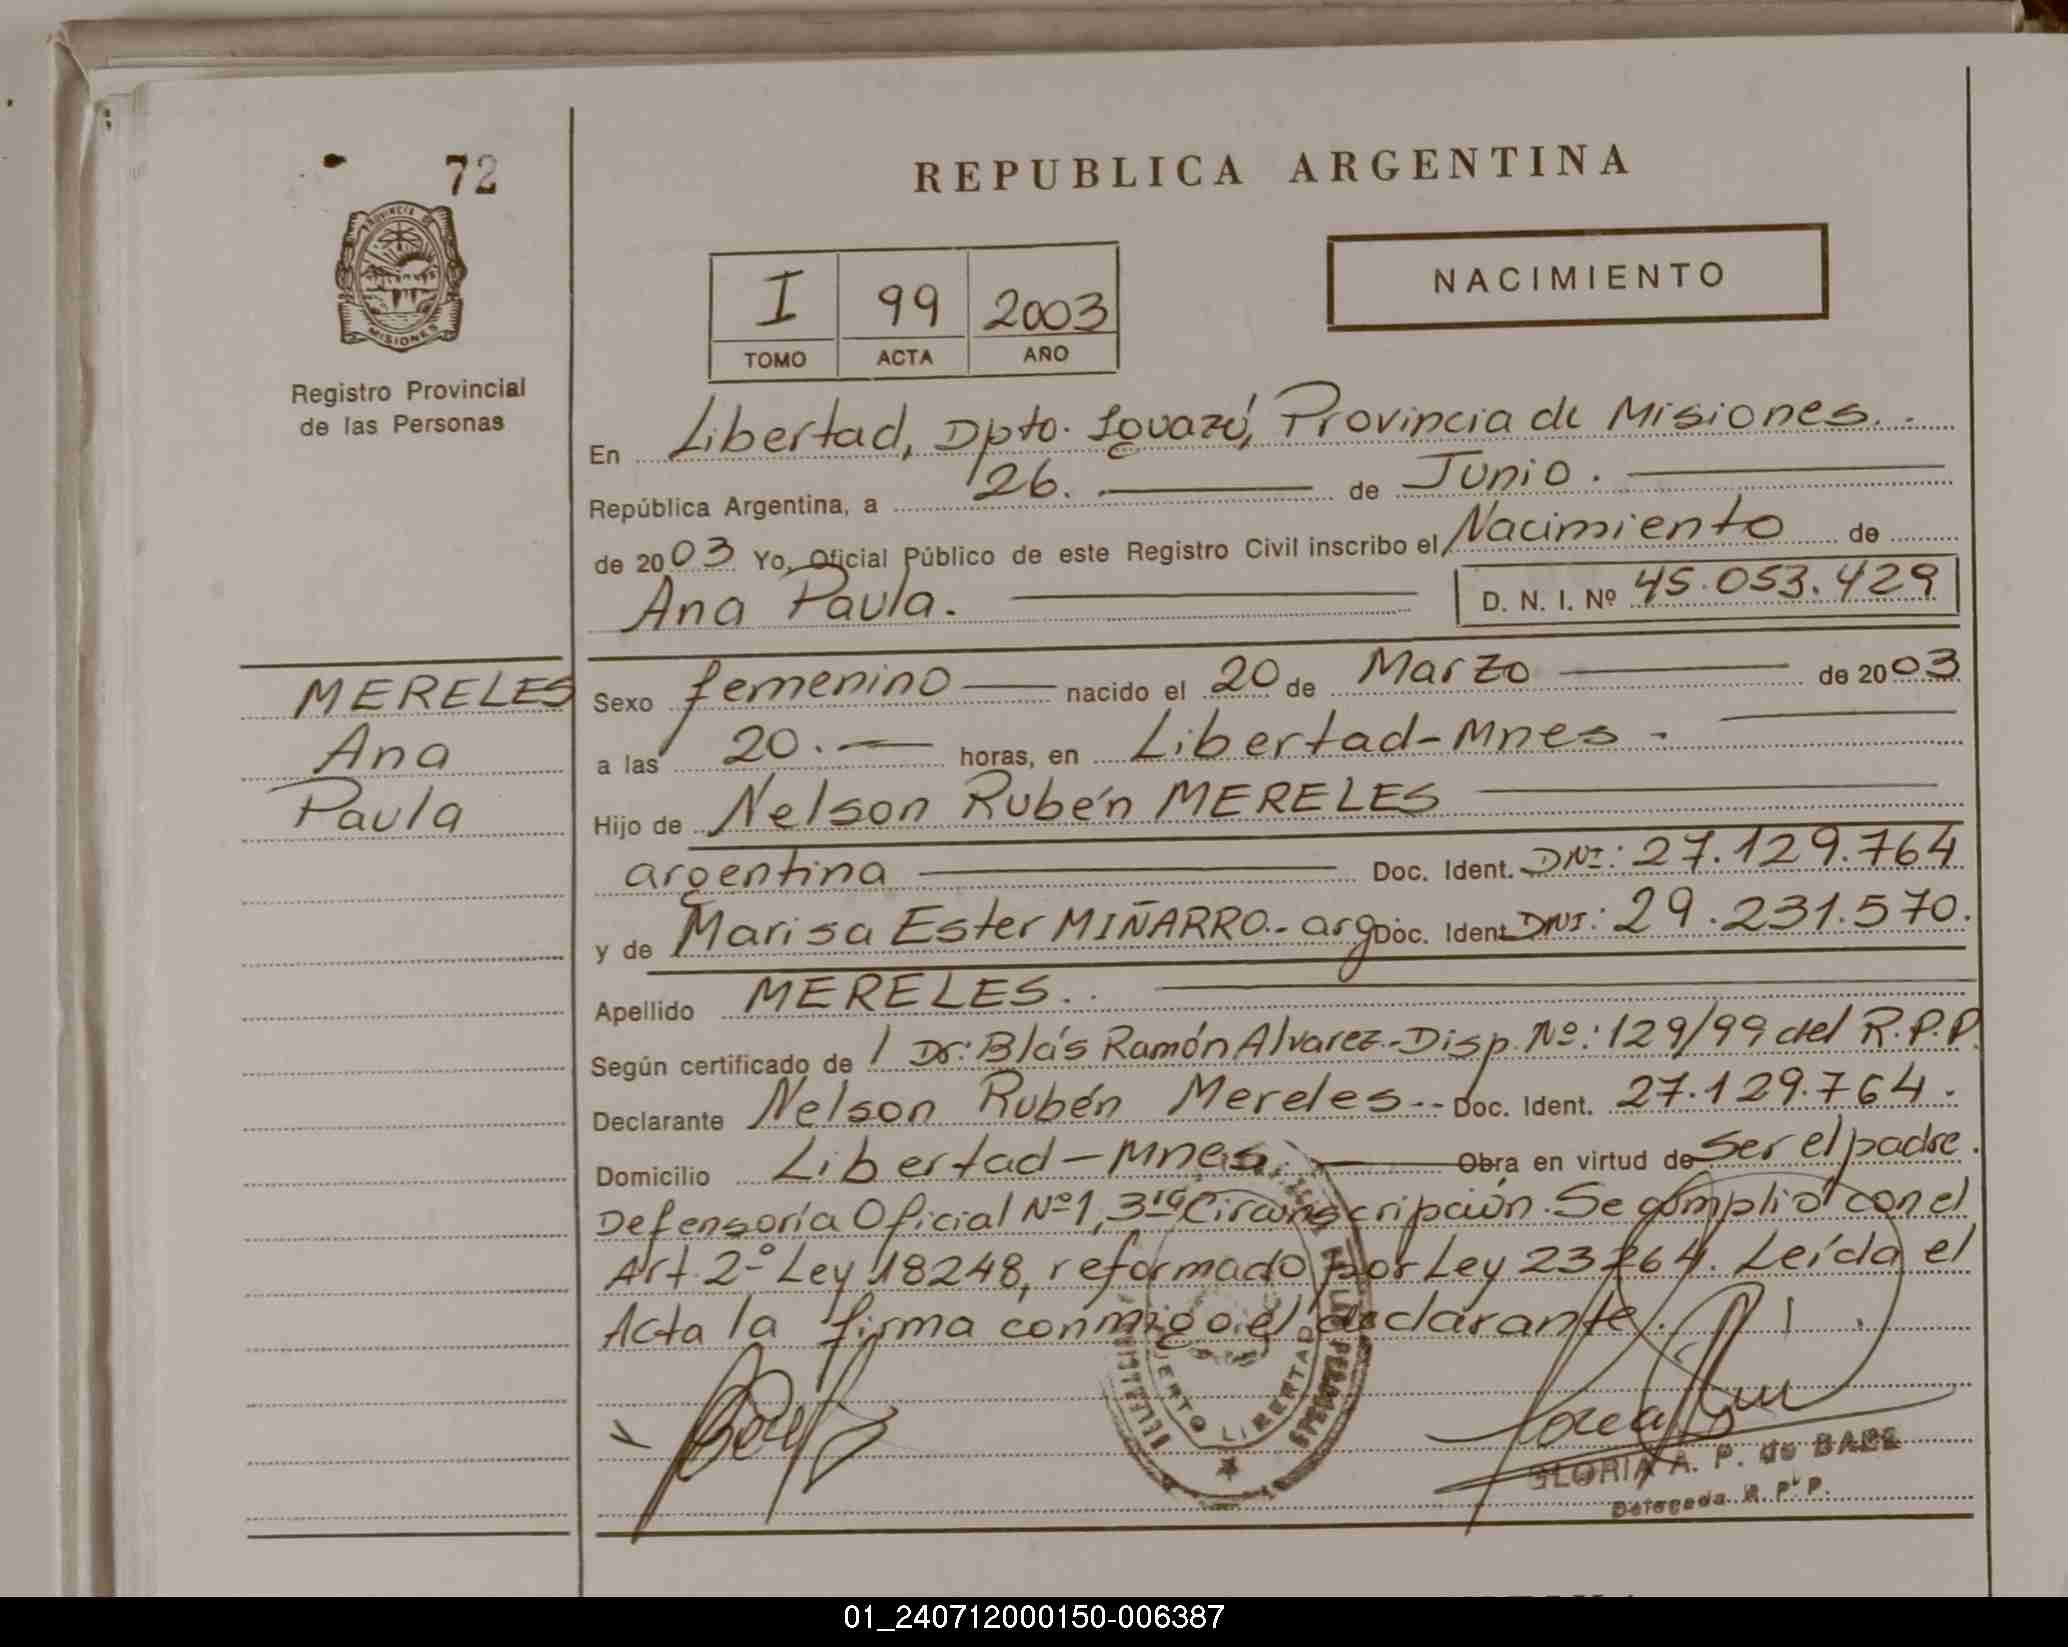 72
PROVINCIA DE
MISIONES
Registro Provincial
de las Personas
REPUBLICA ARGENTINA
I 99 2003
TOMO ACTA AÑO
NACIMIENTO
En Libertad, Dpto. Iguazú, Provincia de Misiones..
República Argentina, a 26. de Junio.
de 2003 Yo, Oficial Público de este Registro Civil inscribo el Nacimiento de
Ana Paula. D. N. I. Nº 45.053.429
MERELES
Ana
Paula
Sexo femenino nacido el 20 de Marzo de 2003
a las 20. horas, en Libertad-Mnes.
Hijo de Nelson Rubén MERELES
argentina Doc. Ident. DNI: 27.129.764
y de Marisa Ester MIÑARRO.- arg Doc. Ident. DNI: 29.231.570.
Apellido MERELES..
Según certificado de l Dr: Blás Ramón Alvarez.-Disp. Nº: 129/99 del R.P.P
Declarante Nelson Rubén Mereles.- Doc. Ident. 27.129.764.
Domicilio Libertad-Mnes. Obra en virtud de Ser el padre.
Defensoría Oficial Nº1, 3ra Circunscripción. Se cumplió con el
Art. 2º Ley 18248, reformado por Ley 23264. Leída el
Acta la firma conmigo el declarante.
PUERTO LIBERTAD
GLORIA A. P. de BAEZ
Delegada R. P. P.
01_240712000150-006387